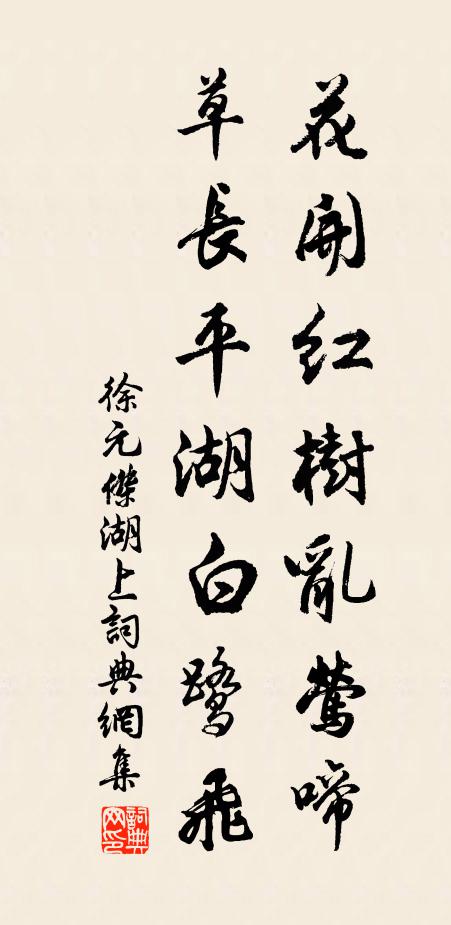 花開紅樹亂鶯啼
草長平湖白鷺飛
徐元傑湖上詞典網集
詞典網印